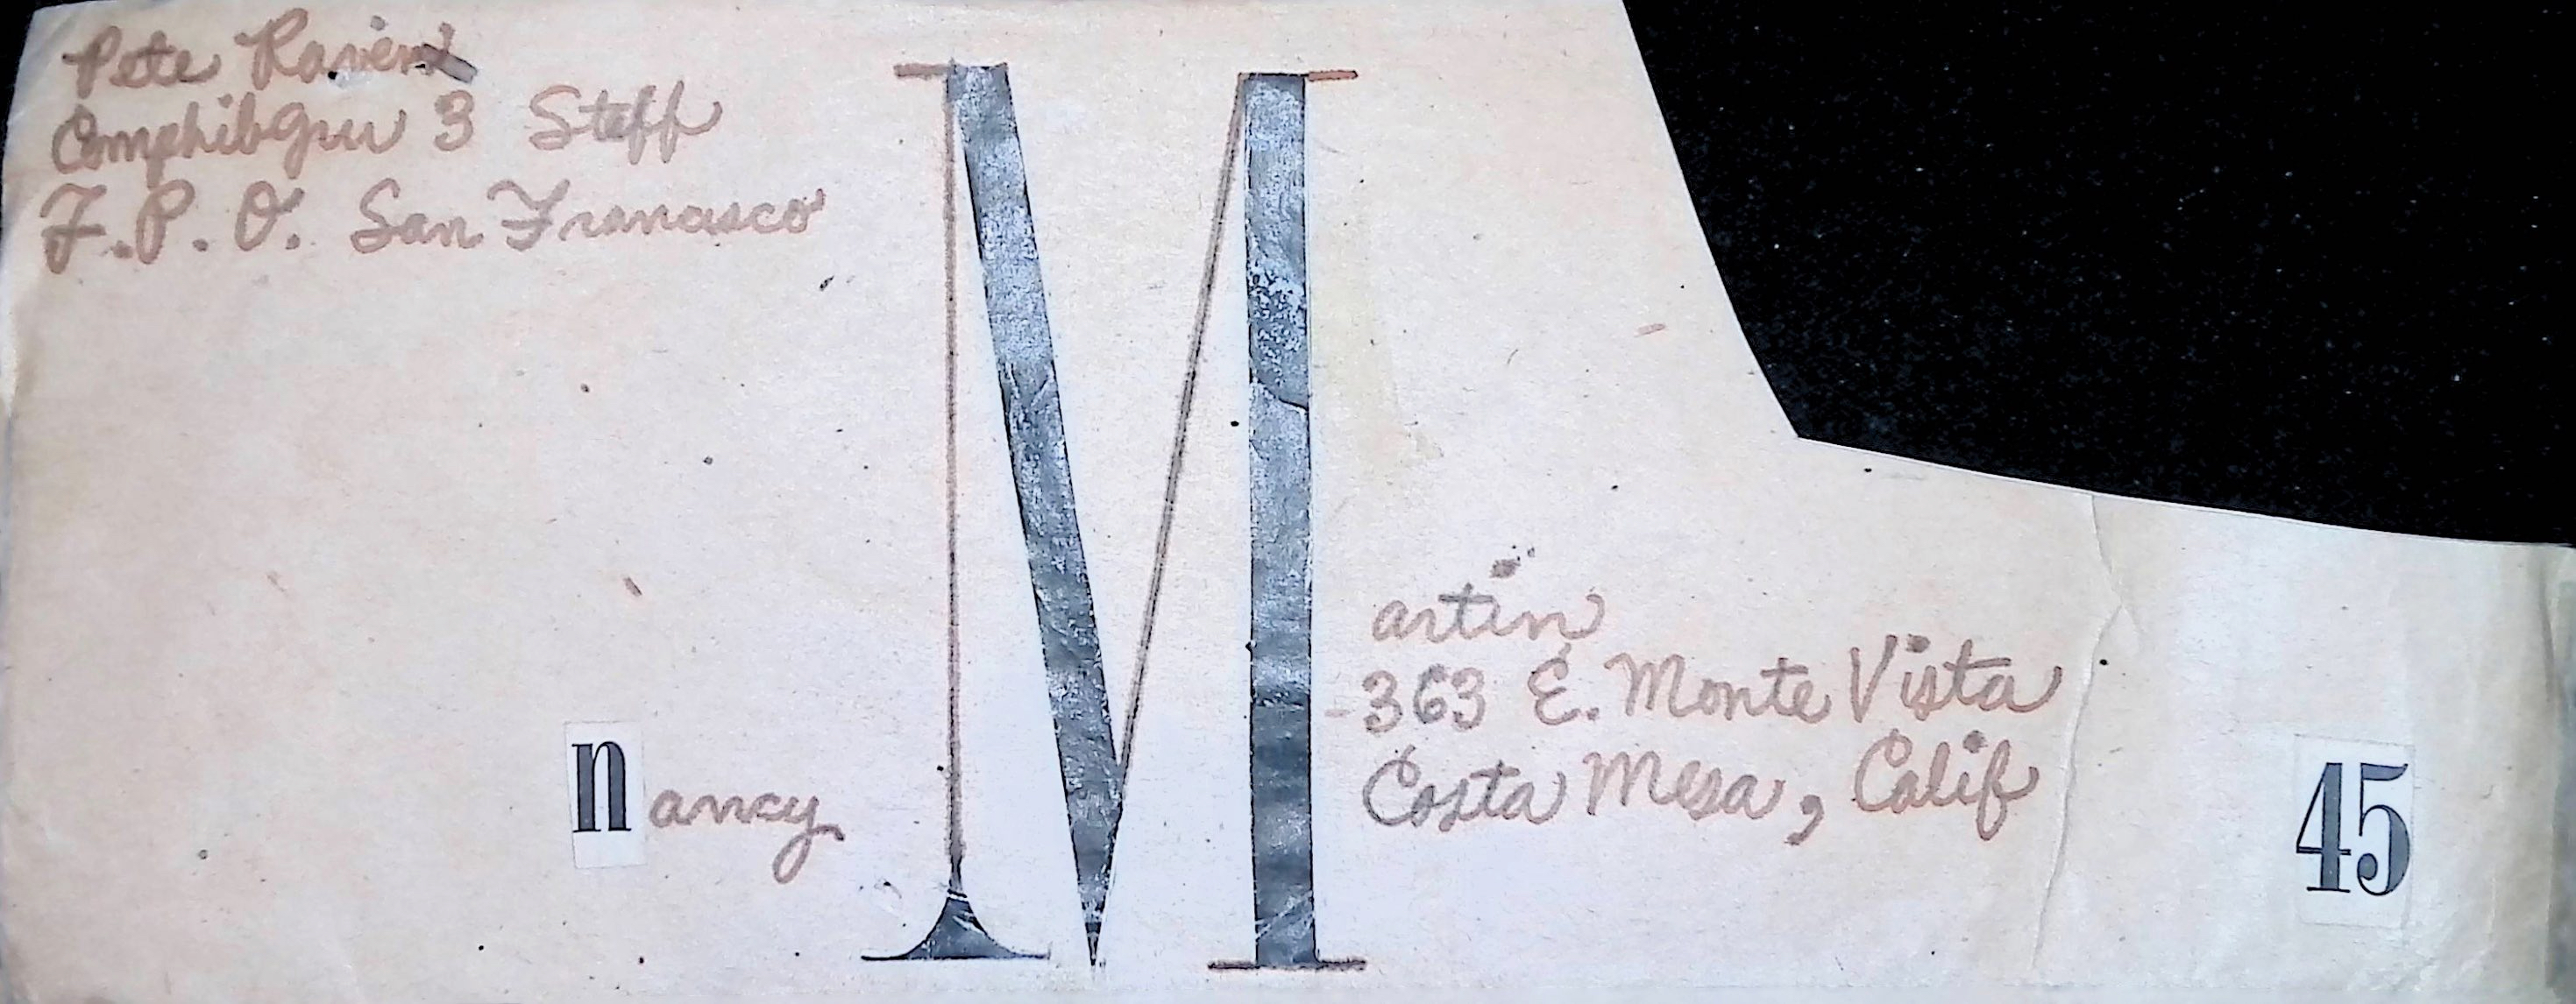 Pete
Comphibgru 3 Staff
F.P.O. San Francisco
nancy Martin
363 E. Monte Vista
Costa Mesa, Calif
45